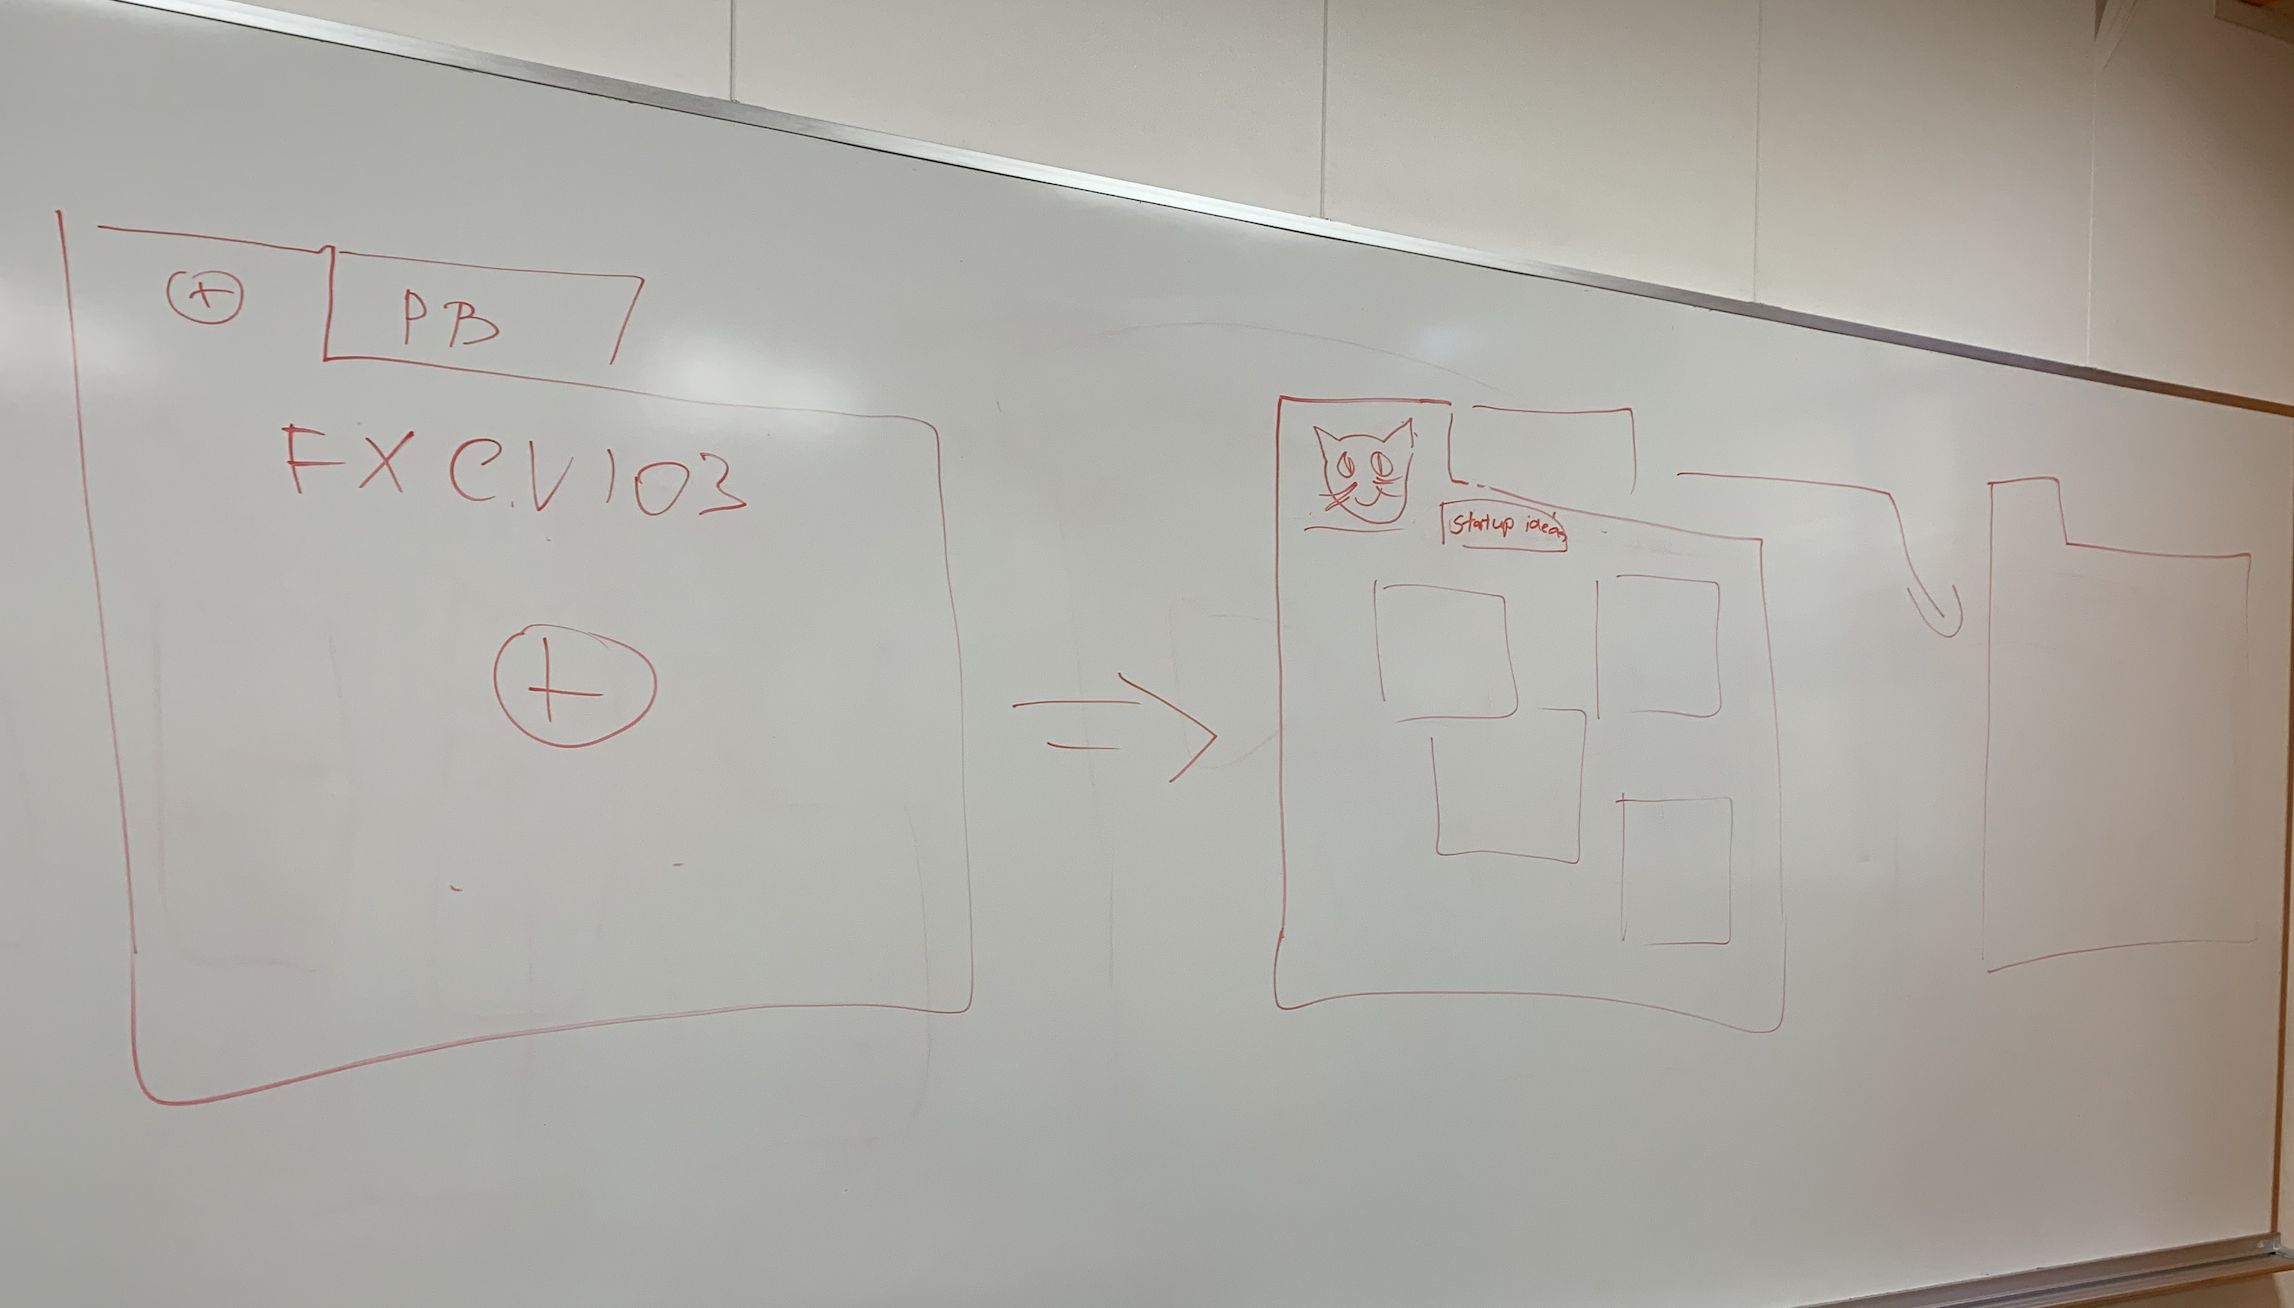 +
PB
FXC.V103
+
Startup ideas